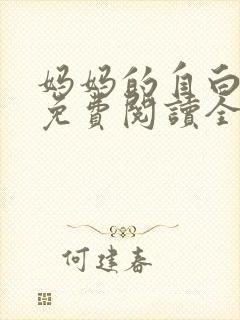 妈妈的自白
免費閱讀全
何建春